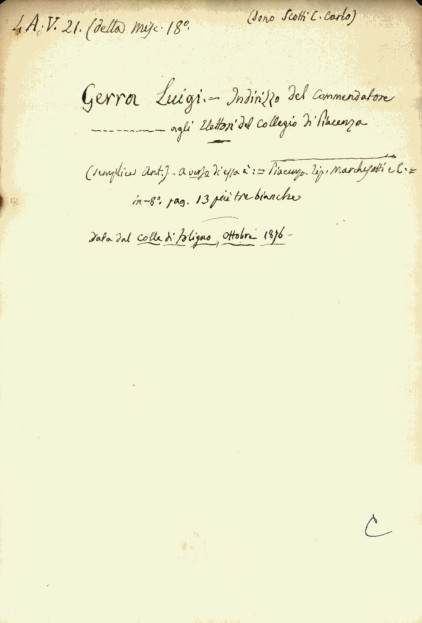 4 A. V. 21. (della Misc. 18º.
(dono Scotti C. Carlo)
Gerra Luigi. — Indirizzo del Commendatore
agli Elettori del Collegio di Piacenza
(semplice Ant.) - a verso di essa è := Piacenza Tip. Marchesotti e C. =
in-8º. pag. 13 più tre bianche
Data dal colle di Foligno, Ottobre 1876 -
C